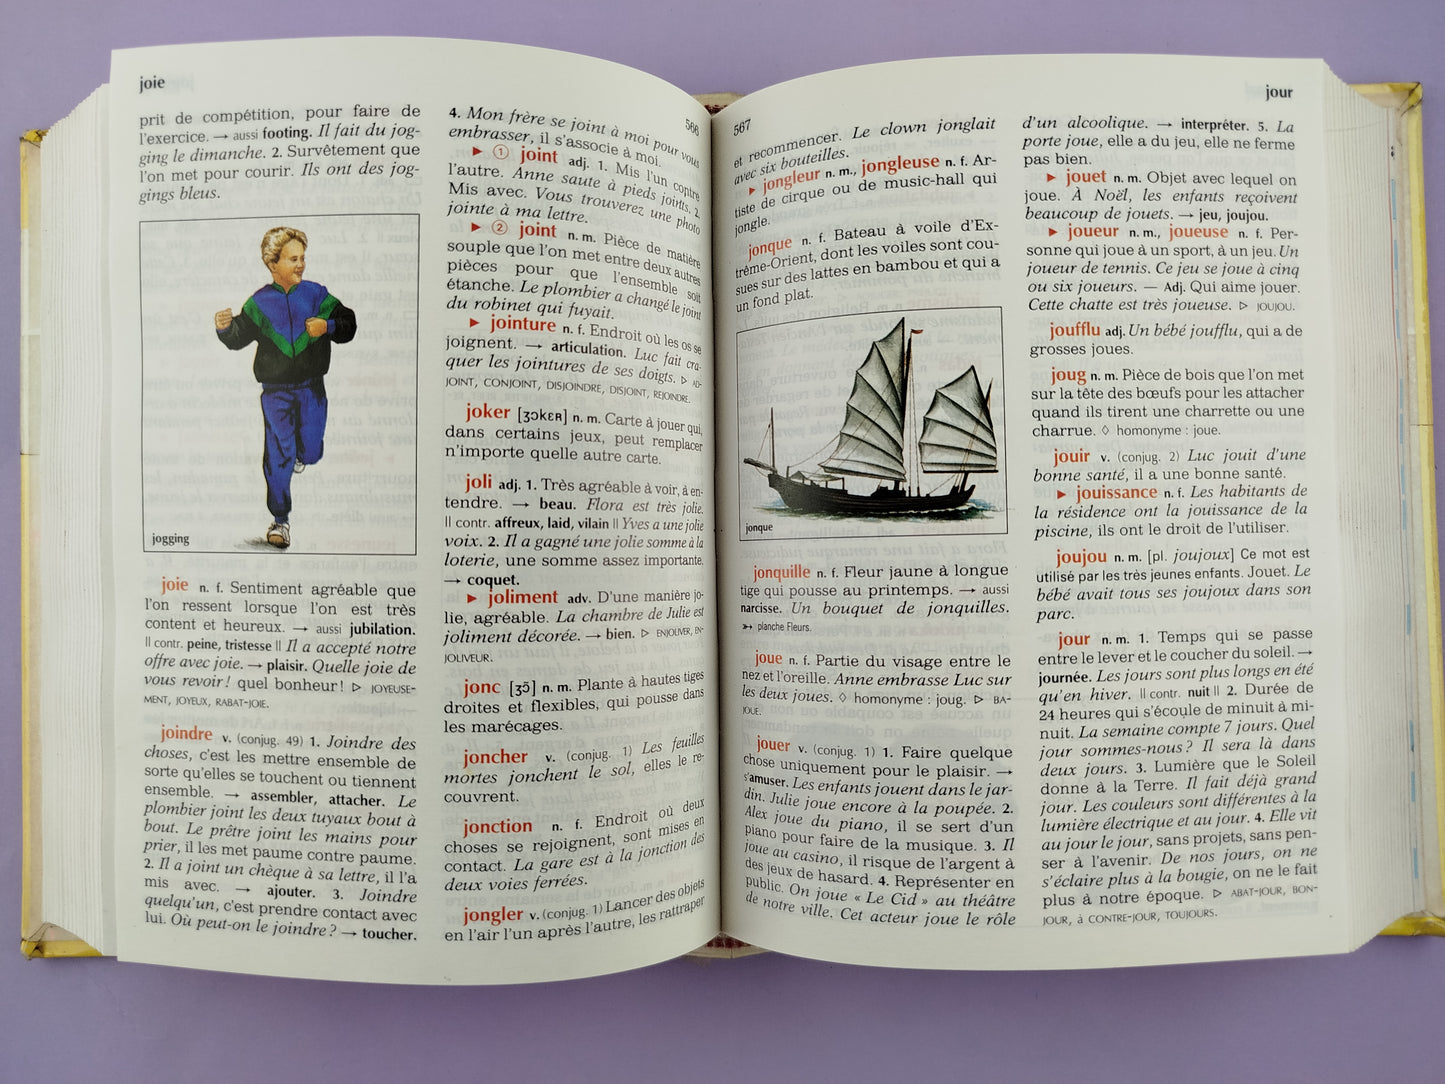 joie
prit de compétition, pour faire de
l'exercice. → aussi footing. Il fait du jog-
ging le dimanche. 2. Survêtement que
l'on met pour courir. Ils ont des jog-
gings bleus.
jogging
joie n. f. Sentiment agréable que
l'on ressent lorsque l'on est très
content et heureux. → aussi jubilation.
|| contr. peine, tristesse || Il a accepté notre
offre avec joie. → plaisir. Quelle joie de
vous revoir ! quel bonheur ! ▷ JOYEUSE-
MENT, JOYEUX, RABAT-JOIE.
joindre v. (conjug. 49) 1. Joindre des
choses, c'est les mettre ensemble de
sorte qu'elles se touchent ou tiennent
ensemble. → assembler, attacher. Le
plombier joint les deux tuyaux bout à
bout. Le prêtre joint les mains pour
prier, il les met paume contre paume.
2. Il a joint un chèque à sa lettre, il l'a
mis avec. → ajouter. 3. Joindre
quelqu'un, c'est prendre contact avec
lui. Où peut-on le joindre ? → toucher.
566
4. Mon frère se joint à moi pour vous
embrasser, il s'associe à moi.
► ① joint adj. 1. Mis l'un contre
l'autre. Anne saute à pieds joints. 2.
Mis avec. Vous trouverez une photo
jointe à ma lettre.
► ② joint n. m. Pièce de matière
souple que l'on met entre deux autres
pièces pour que l'ensemble soit
étanche. Le plombier a changé le joint
du robinet qui fuyait.
► jointure n. f. Endroit où les os se
joignent. → articulation. Luc fait cra-
quer les jointures de ses doigts. ▷ AD-
JOINT, CONJOINT, DISJOINDRE, DISJOINT, REJOINDRE.
joker [ʒɔkɛʀ] n. m. Carte à jouer qui,
dans certains jeux, peut remplacer
n'importe quelle autre carte.
joli adj. 1. Très agréable à voir, à en-
tendre. → beau. Flora est très jolie.
|| contr. affreux, laid, vilain || Yves a une jolie
voix. 2. Il a gagné une jolie somme à la
loterie, une somme assez importante.
→ coquet.
► joliment adv. D'une manière jo-
lie, agréable. La chambre de Julie est
joliment décorée. → bien. ▷ ENJOLIVER, EN-
JOLIVEUR.
jonc [ʒɔ̃] n. m. Plante à hautes tiges
droites et flexibles, qui pousse dans
les marécages.
joncher v. (conjug. 1) Les feuilles
mortes jonchent le sol, elles le re-
couvrent.
jonction n. f. Endroit où deux
choses se rejoignent, sont mises en
contact. La gare est à la jonction des
deux voies ferrées.
jongler v. (conjug. 1) Lancer des objets
en l'air l'un après l'autre, les rattraper
567
jour
et recommencer. Le clown jonglait
avec six bouteilles.
► jongleur n. m., jongleuse n. f. Ar-
tiste de cirque ou de music-hall qui
jongle.
jonque n. f. Bateau à voile d'Ex-
trême-Orient, dont les voiles sont cou-
sues sur des lattes en bambou et qui a
un fond plat.
jonque
jonquille n. f. Fleur jaune à longue
tige qui pousse au printemps. → aussi
narcisse. Un bouquet de jonquilles.
➳ planche Fleurs.
joue n. f. Partie du visage entre le
nez et l'oreille. Anne embrasse Luc sur
les deux joues. ◊ homonyme : joug. ▷ BA-
JOUE.
jouer v. (conjug. 1) 1. Faire quelque
chose uniquement pour le plaisir. →
s'amuser. Les enfants jouent dans le jar-
din. Julie joue encore à la poupée. 2.
Alex joue du piano, il se sert d'un
piano pour faire de la musique. 3. Il
joue au casino, il risque de l'argent à
des jeux de hasard. 4. Représenter en
public. On joue « Le Cid » au théâtre
de notre ville. Cet acteur joue le rôle
d'un alcoolique. → interpréter. 5. La
porte joue, elle a du jeu, elle ne ferme
pas bien.
► jouet n. m. Objet avec lequel on
joue. À Noël, les enfants reçoivent
beaucoup de jouets. → jeu, joujou.
► joueur n. m., joueuse n. f. Per-
sonne qui joue à un sport, à un jeu. Un
joueur de tennis. Ce jeu se joue à cinq
ou six joueurs. — Adj. Qui aime jouer.
Cette chatte est très joueuse. ▷ JOUJOU.
joufflu adj. Un bébé joufflu, qui a de
grosses joues.
joug n. m. Pièce de bois que l'on met
sur la tête des bœufs pour les attacher
quand ils tirent une charrette ou une
charrue. ◊ homonyme : joue.
jouir v. (conjug. 2) Luc jouit d'une
bonne santé, il a une bonne santé.
► jouissance n. f. Les habitants de
la résidence ont la jouissance de la
piscine, ils ont le droit de l'utiliser.
joujou n. m. [pl. joujoux] Ce mot est
utilisé par les très jeunes enfants. Jouet. Le
bébé avait tous ses joujoux dans son
parc.
jour n. m. 1. Temps qui se passe
entre le lever et le coucher du soleil. →
journée. Les jours sont plus longs en été
qu'en hiver. || contr. nuit || 2. Durée de
24 heures qui s'écoule de minuit à mi-
nuit. La semaine compte 7 jours. Quel
jour sommes-nous ? Il sera là dans
deux jours. 3. Lumière que le Soleil
donne à la Terre. Il fait déjà grand
jour. Les couleurs sont différentes à la
lumière électrique et au jour. 4. Elle vit
au jour le jour, sans projets, sans pen-
ser à l'avenir. De nos jours, on ne
s'éclaire plus à la bougie, on ne le fait
plus à notre époque. ▷ ABAT-JOUR, BON-
JOUR, à CONTRE-JOUR, TOUJOURS.